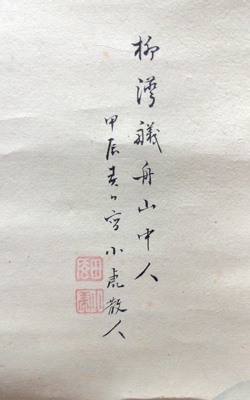 柳湾艤舟山中人
甲辰春日写小虎散人